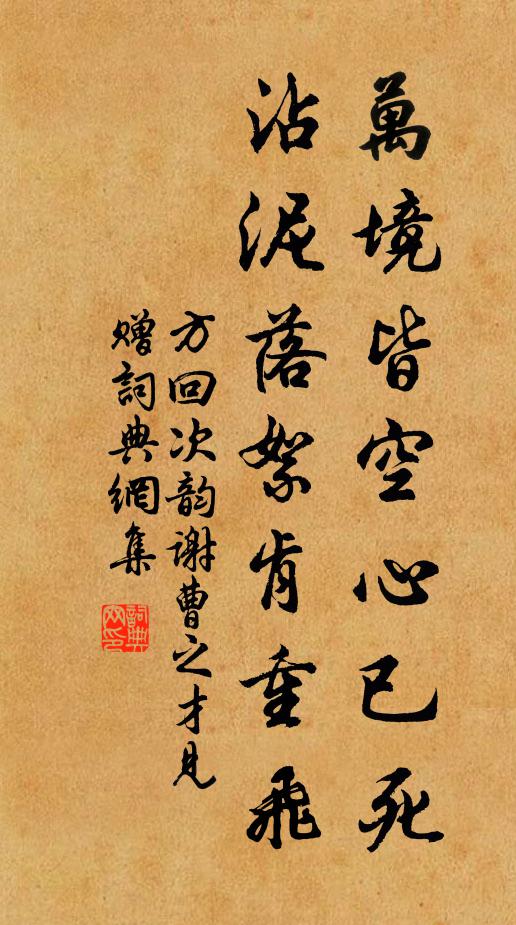 萬境皆空心已死
沾泥落絮肯重飛
方回次韵謝曹之才見
贈詞典網集
詞典
网印